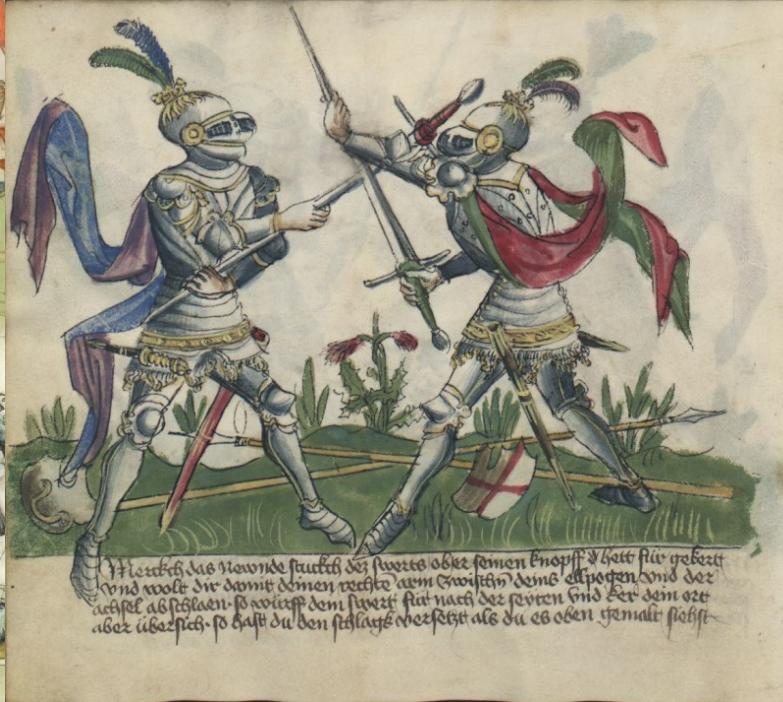 Merckch das Newnde stuckch des swerts ober seinen knopff hett für gekertt
vnd wolt dir damit deinen rechtē arm zwischn̄ deins ellpogen vnd der
achsel abschlaen so würff dein swert für nach der seyten vnd ker dein ort
aber übersich · so hast du den schlagk versetzt als du es oben gemalt siehst